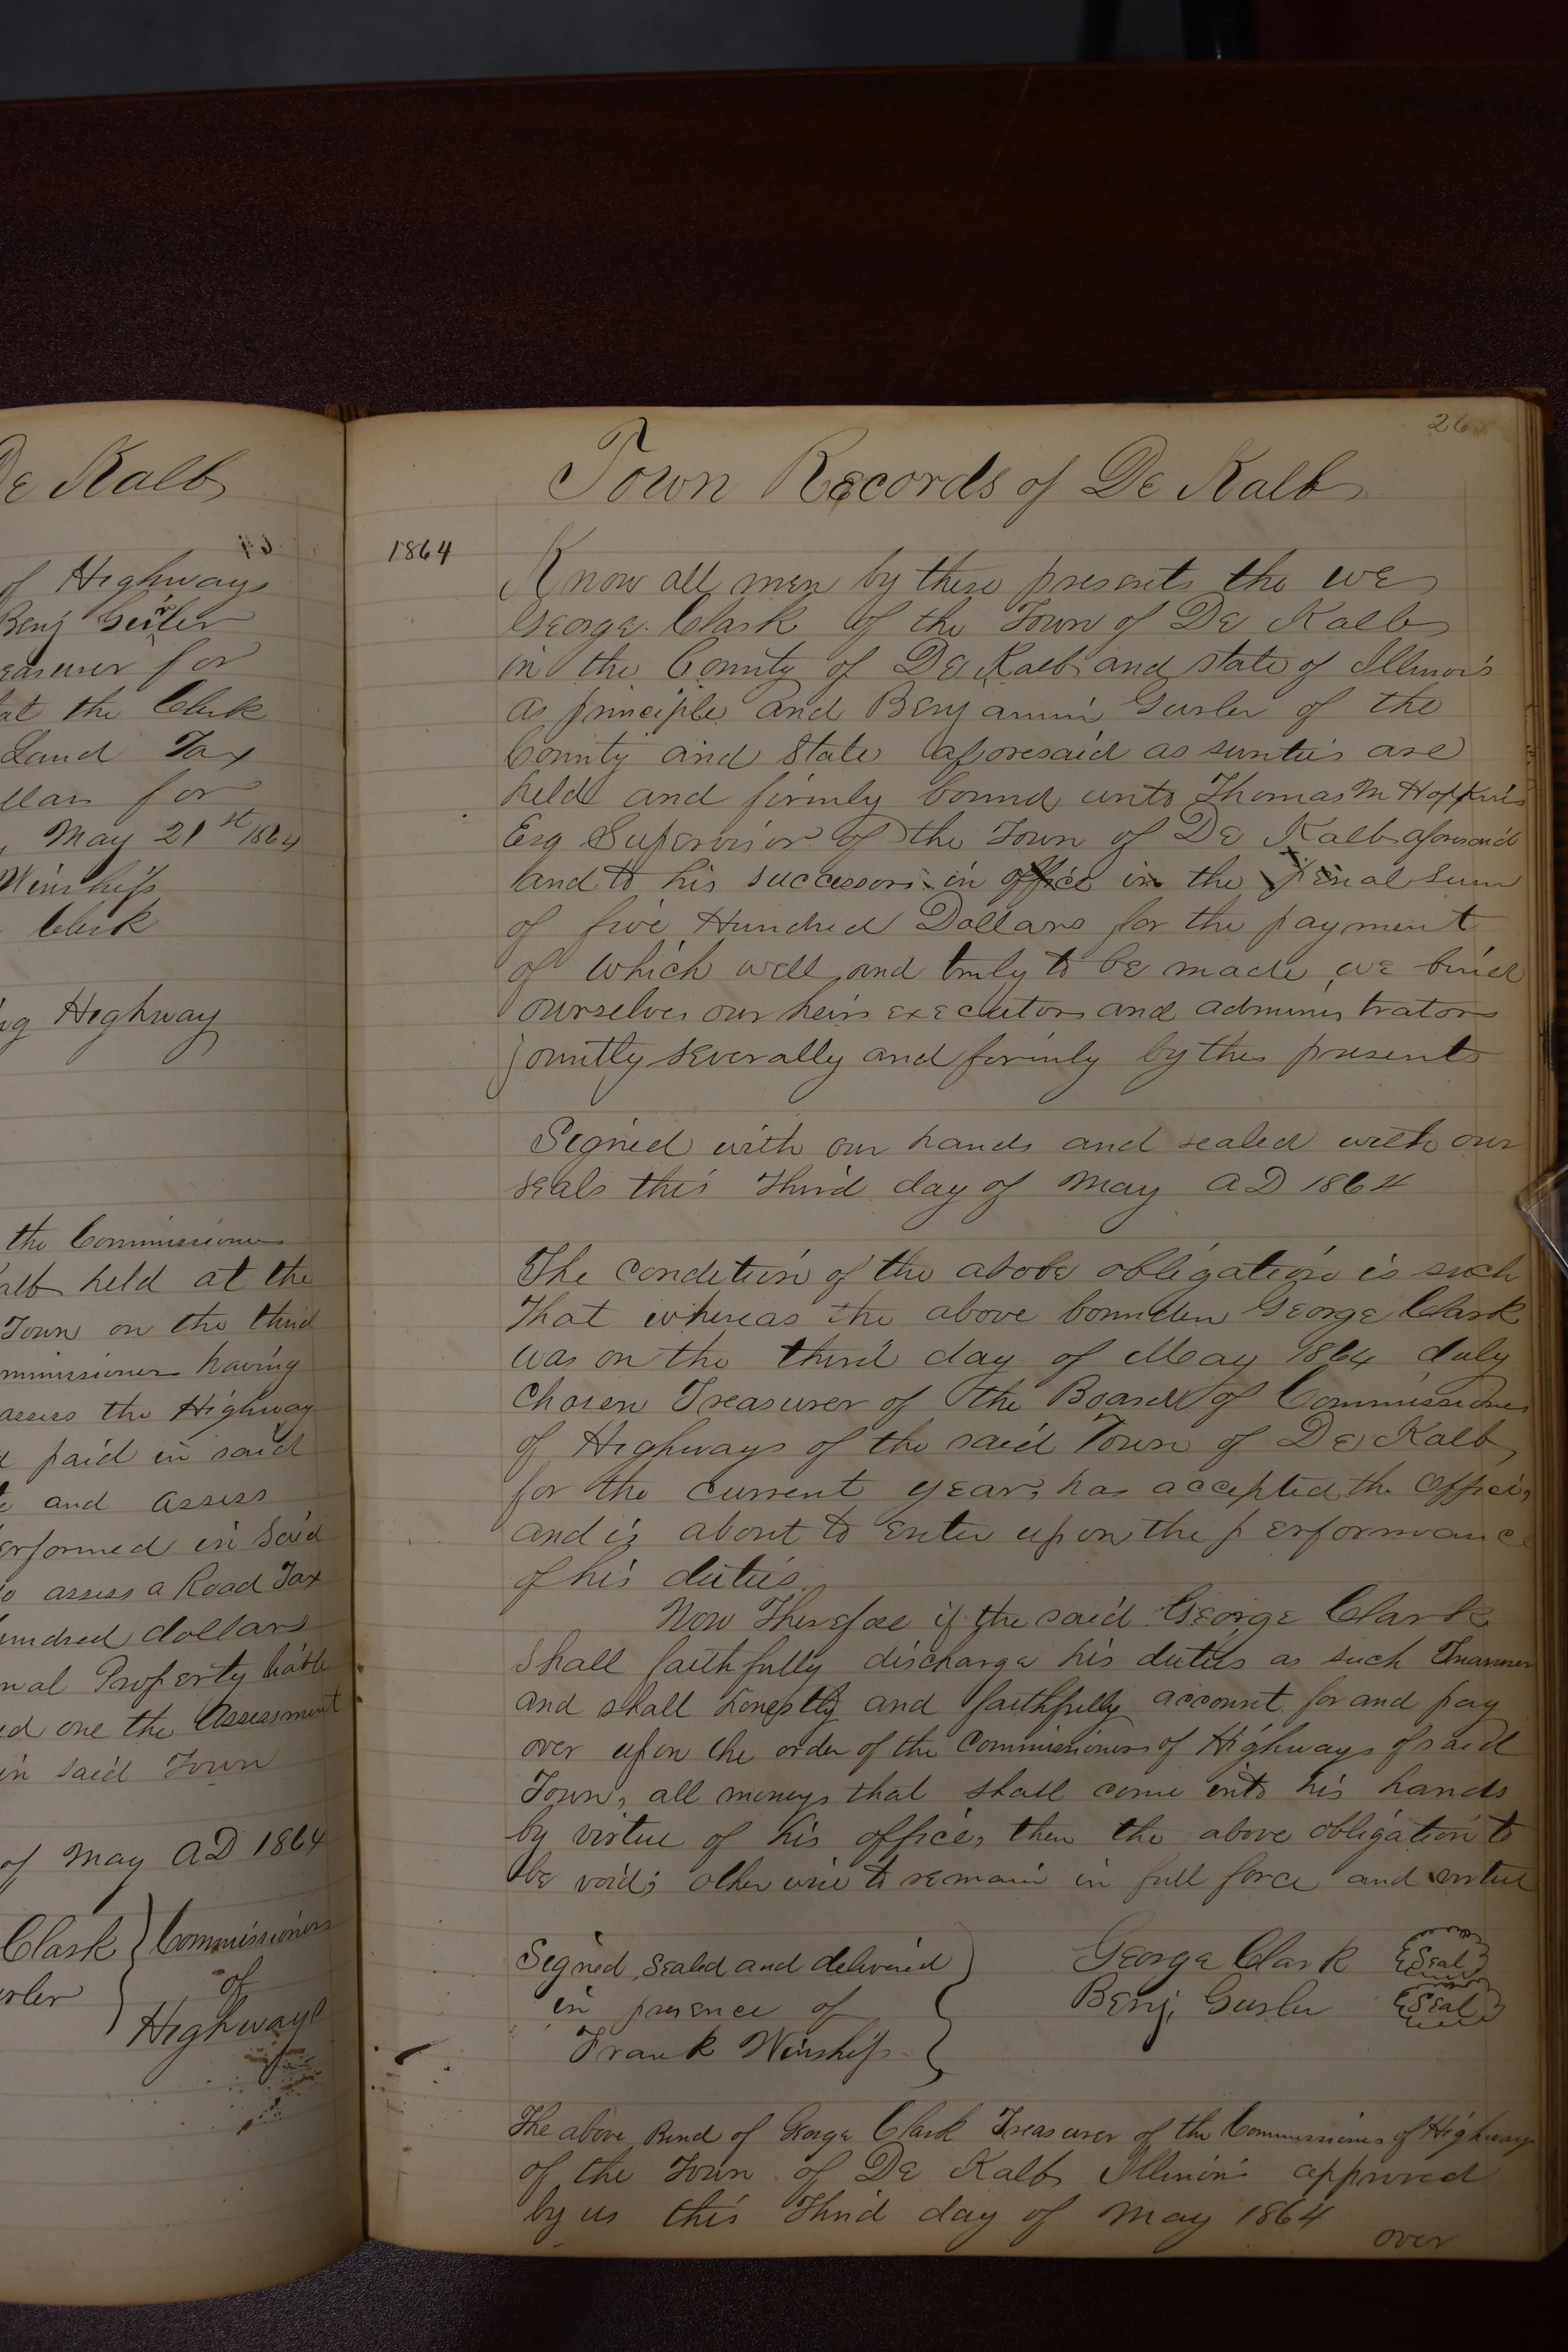 De Kalb
of Highways
Benj Gurler
easurer for
at the Clerk
Land Tax
llars for
May 21st 1864
Winship
Clerk
ng Highway
the Commissioners
alb held at the
Town on the third
mmissioners having
assess the Highway
d paid in said
and assess
erformed in said
to assess a Road Tax
undred dollars
nal Property liable
ed one the Assessment
in said Town
of May AD 1864
Clark } Commissioners
urler of
Highways
26
Town Records of De Kalb
1864
Know all men by these presents the we
George Clark of the Town of De Kalb
in the County of De Kalb and state of Illinois
as principle and Benjamin Gurler of the
County and State aforesaid as surities are
held and firmly bound unto Thomas M Hopkins
Esq Supervisor of the Town of De Kalb aforesaid
and to his successors in office in the penal sum
of five Hundred Dollars for the payment
of which well and truly to be made we bind
ourselves our heirs executors and administrators
jointly severally and firmly by thes presents
Signed with our hands and sealed with our
seals this Third day of May AD 1864
The condition of the above obligation is such
That whereas the above bounden George Clark
was on the third day of May 1864 duly
chosen Treasurer of the Board of Commissioners
of Highways of the said Town of De Kalb,
for the current year, has accepted the office,
and is about to enter upon the performance
of his duties.
Now Therefore if the said George Clark
shall faithfully discharge his duties as such Treasurer
and shall honestly and faithfully account for and pay
over upon the order of the Commissioners of Highways of said
Town, all moneys that shall come into his hands
by virtue of his office, then the above obligation to
be void; otherwise to remain in full force and virtue
Signed, Sealed and delivered } George Clark {Seal}
in presence of Benj. Gurler {Seal}
Frank Winship
The above Bond of George Clark Treasurer of the Commissioners of Highways
of the Town of De Kalb Illinois approved
by us this Third day of May 1864
over